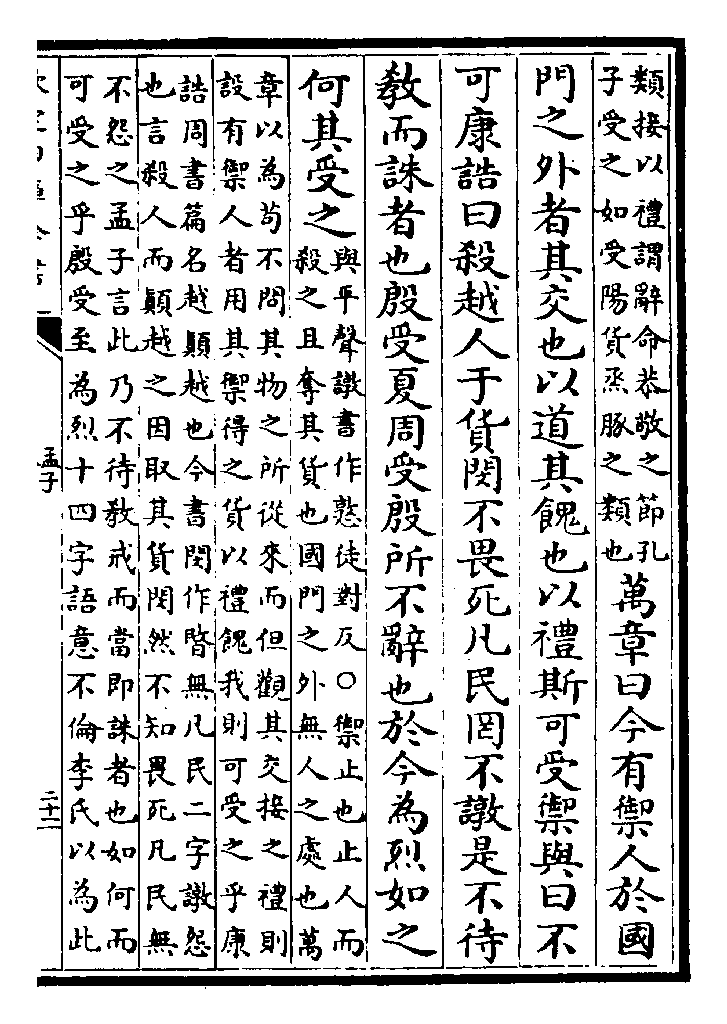 類接以禮謂辭命恭敬之節孔
子受之如受陽貨烝豚之類也
萬章曰今有禦人於國
門之外者其交也以道其餽也以禮斯可受禦與曰不
可康誥曰殺越人于貨閔不畏死凡民罔不譈是不待
教而誅者也殷受夏周受殷所不辭也於今為烈如之
何其受之
與平聲譈書作憝徒對反○禦止也止人而
殺之且奪其貨也國門之外無人之處也萬
章以為苟不問其物之所從來而但觀其交接之禮則
設有禦人者用其禦得之貨以禮餽我則可受之乎康
誥周書篇名越顛越也今書閔作暋無凡民二字譈怨
也言殺人而顛越之因取其貨閔然不知畏死凡民無
不怨之孟子言此乃不待教戒而當即誅者也如何而
可受之乎殷受至為烈十四字語意不倫李氏以為此
孟子
二十二